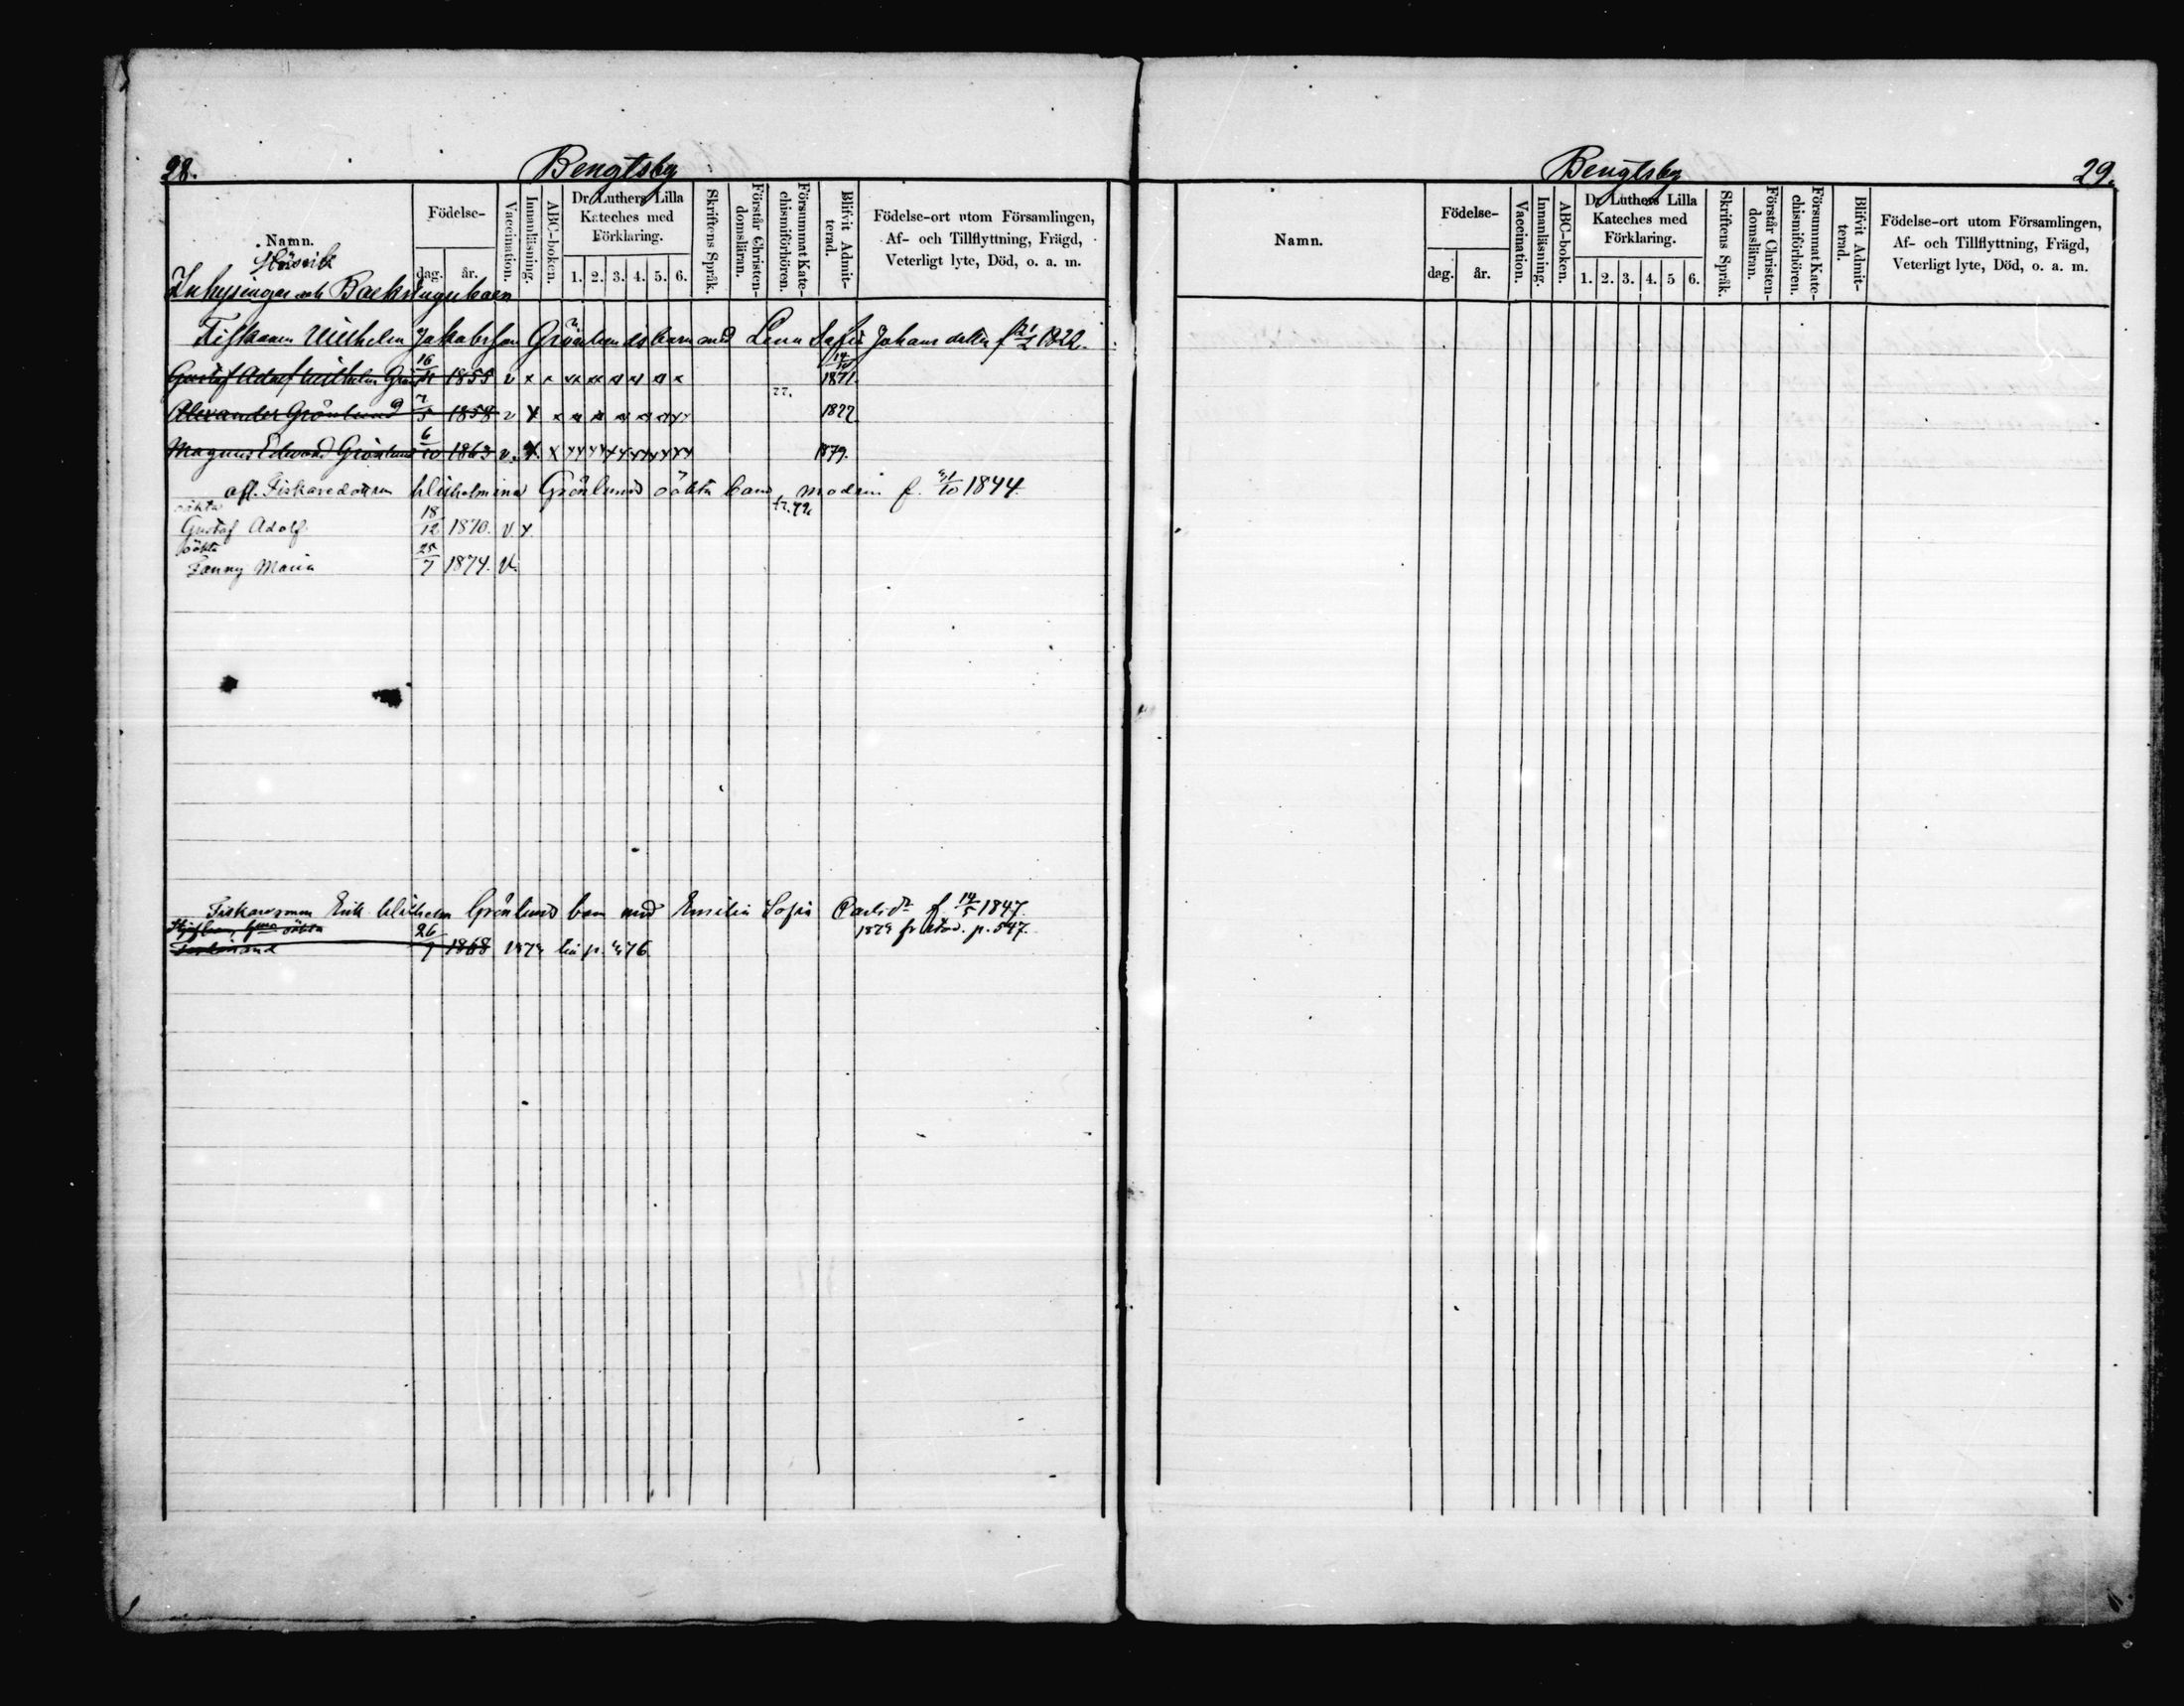 28.
Bengtsby
Namn.
Födelse-
dag.
år.
Vaccination.
Innanläsning.
ABC-boken.
Dr Luthers Lilla
Kateches med
Förklaring.
1. 2. 3. 4. 5. 6.
Skriftens Språk.
Förstår Christen-
domsläran.
Försummat Kate-
chismiförhören.
Blifvit Admit-
terad.
Födelse-ort utom Församlingen,
Af- och Tillflyttning, Frägd,
Veterligt lyte, Död, o. a. m.
Inhysingar och Backstugubarn
Fiskaren Wilhelm Jakobsson Grönlunds barn med Lena Sofia Johansdotter f. 1822.
Gustaf Adolf Wilhelm 16 1855 v x x xx xx x x x x 14 1871.
Alexander Grönlund 7/5 1858 v x x x x x x x xx 77. 1877
Magnus Edvard Grönlund 6/10 1863 v. x. x xx xx xx xx xx xx 1879.
afl. Fiskaredottren Wilhelmina Grönlunds oäkta barn, modren f. /10 1844.
oäkta
Gustaf Adolf. 18/12 1870. v x
oäkta
Fanny Maria 25/7 1874. v.
Fiskaresonen Erik Wilhelm Grönlund barn med Emilia Sofia Carlsdr f. 14/5 1847.
oäkta 26/7 1868 p. 76
p. 547.
Bengtsby
29.
Namn.
Födelse-
dag.
år.
Vaccination.
Innanläsning.
ABC-boken.
Dr Luthers Lilla
Kateches med
Förklaring.
1. 2. 3. 4. 5 6.
Skriftens Språk.
Förstår Christen-
domsläran.
Försummat Kate-
chismiförhören.
Blifvit Admit-
terad.
Födelse-ort utom Församlingen,
Af- och Tillflyttning, Frägd,
Veterligt lyte, Död, o. a. m.